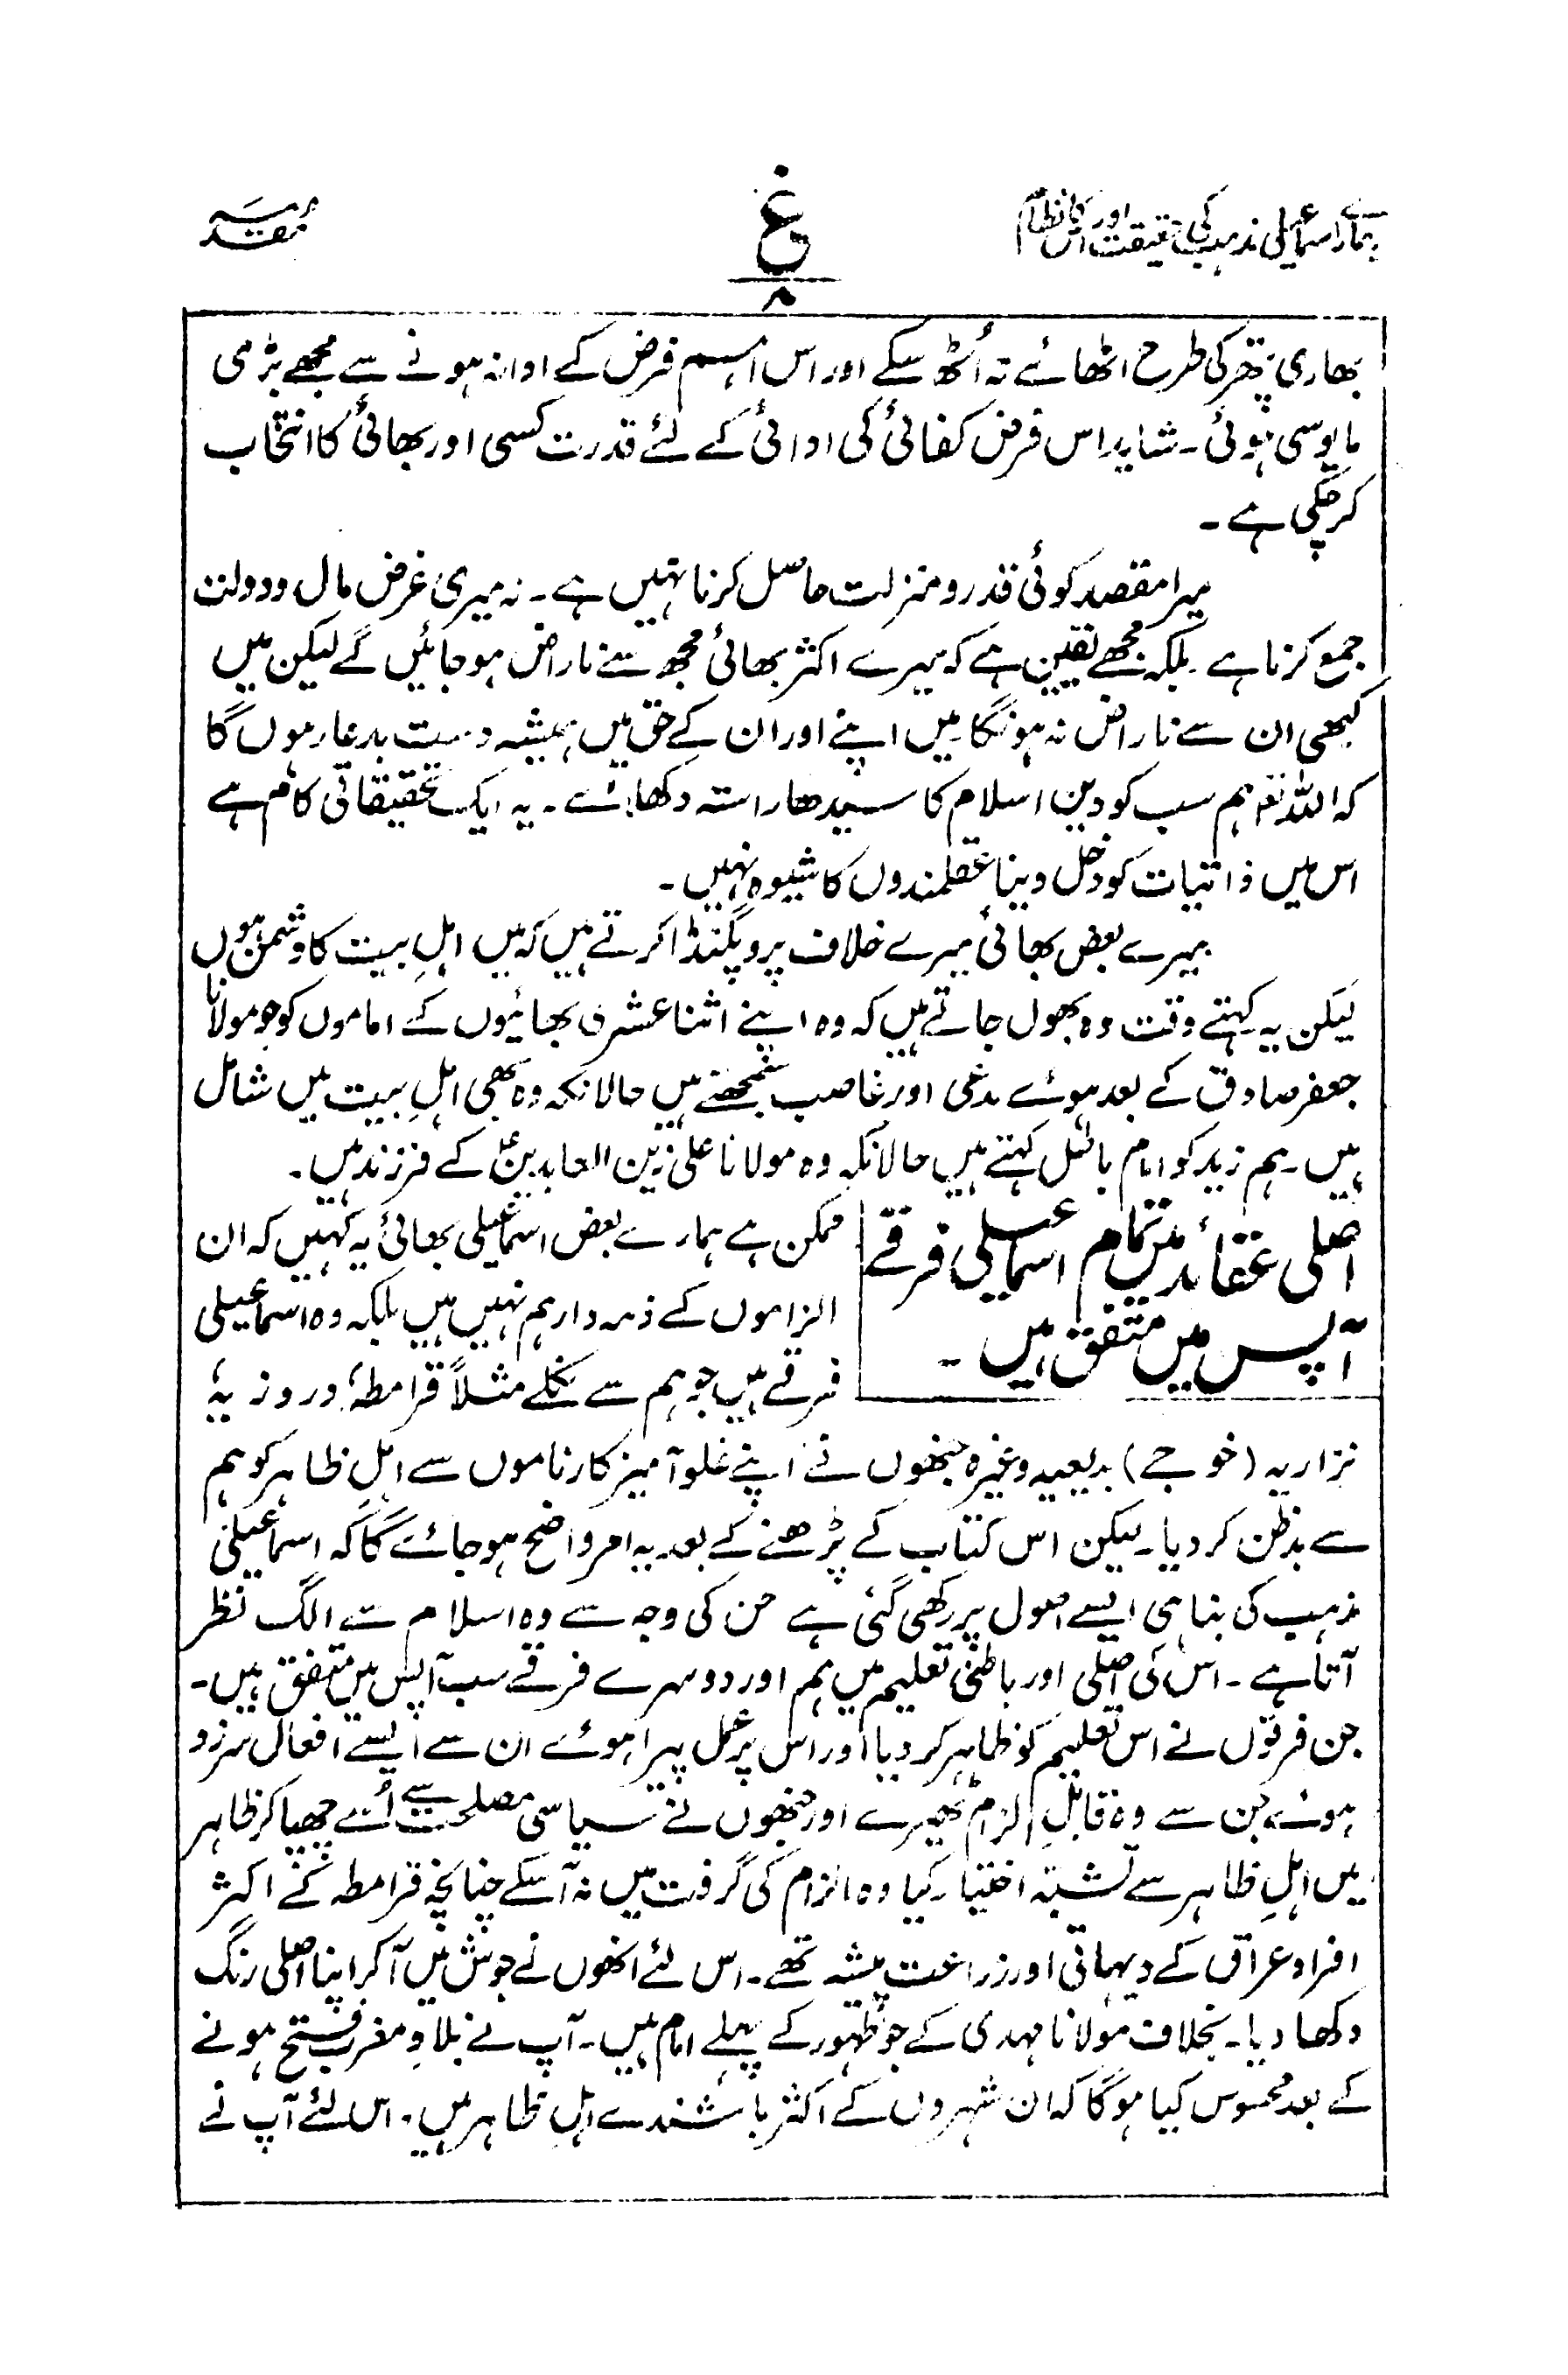 ہمارے اسماعیلی مذہب کی حقیقت اور اس کا نظام
غ
۸
مقدمہ
بھاری پتھر کی طرح اٹھائے نہ اُٹھ سکے اور اس اہم فرض کے ادا نہ ہونے سے مجھے بڑی
مایوسی ہوئی۔ شاید اس فرض کفائی کی ادائی کے لئے قدرت کسی اور بھائی کا انتخاب
کر چکی ہے۔
میرا مقصد کوئی قدر و منزلت حاصل کرنا نہیں ہے۔ نہ میری غرض مال و دولت
جمع کرنا ہے۔ بلکہ مجھے یقین ہے کہ میرے اکثر بھائی مجھ سے ناراض ہو جائیں گے لیکن میں
کبھی ان سے ناراض نہ ہونگا۔ میں اپنے اور ان کے حق میں ہمیشہ دست بدعا رہوں گا
کہ اللہ تعہ ہم سب کو دین اسلام کا سیدھا راستہ دکھائے۔ یہ ایک تحقیقاتی کام ہے
اس میں ذاتیات کو دخل دینا عقلمندوں کا شیوہ نہیں۔
میرے بعض بھائی میرے خلاف پروپگنڈا کرتے ہیں کہ میں اہلِ بیت کا دشمن ہوں
لیکن یہ کہتے وقت وہ بھول جاتے ہیں کہ وہ اپنے اثنا عشری بھائیوں کے اماموں کو جو مولانا
جعفر صادق کے بعد ہوئے مدعی اور غاصب سمجھتے ہیں حالانکہ وہ بھی اہلِ بیت میں شامل
ہیں۔ ہم زید کو امام باطل کہتے ہیں حالانکہ وہ مولانا علی زین العابدینؑ کے فرزند ہیں۔
اصلی عقائد میں تمام اسماعیلی فرقے
آپس میں متفق ہیں۔
ممکن ہے ہمارے بعض اسماعیلی بھائی یہ کہیں کہ ان
الزاموں کے ذمہ دار ہم نہیں ہیں بلکہ وہ اسماعیلی
فرقے ہیں جو ہم سے نکلے مثلاً قرامطہ، دروزیہ،
نزاریہ (خوجے) بدیعیہ وغیرہ جنھوں نے اپنے غلو آمیز کارناموں سے اہلِ ظاہر کو ہم
سے بدظن کر دیا۔ لیکن اس کتاب کے پڑھنے کے بعد یہ امر واضح ہو جائے گا کہ اسماعیلی
مذہب کی بنا ہی ایسے اصول پر رکھی گئی ہے جن کی وجہ سے وہ اسلام سے الگ نظر
آتا ہے۔ اس کی اصلی اور باطنی تعلیم میں ہم اور دوسرے فرقے سب آپس میں متفق ہیں۔
جن فرقوں نے اس تعلیم کو ظاہر کر دیا اور اس پر عمل پیرا ہوئے ان سے ایسے افعال سرزد
ہوئے جن سے وہ قابلِ الزام ٹھیرے اور جنھوں نے سیاسی مصلحت سے اُسے چھپا کر ظاہر
میں اہلِ ظاہر سے تشبّہ اختیار کیا وہ الزام کی گرفت میں نہ آسکے چنانچہ قرامطہ کے اکثر
افراد عراق کے دیہاتی اور زراعت پیشہ تھے۔ اس لئے انھوں نے جوش میں آکر اپنا اصلی رنگ
دکھا دیا۔ بخلاف مولانا مہدی کے جو ظہور کے پہلے امام ہیں۔ آپ نے بلادِ مغرب فتح ہونے
کے بعد محسوس کیا ہوگا کہ ان شہروں کے اکثر باشندے اہلِ ظاہر ہیں۔ اس لئے آپ نے